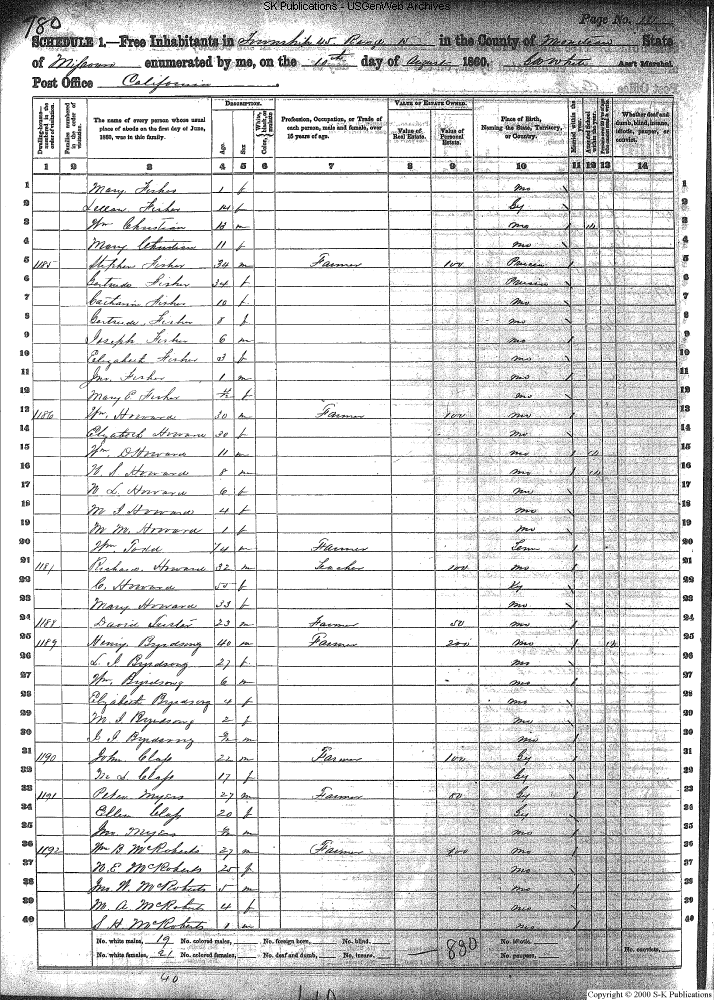 SK Publications - USGenWeb Archives
780
Page No.
SCHEDULE 1.—Free Inhabitants in Township 45 Range 15 in the County of Moniteau State
of Missouri enumerated by me, on the 10th day of August 1860. Ass't Marshal
Post Office California
Dwelling-houses—numbered in the order of visitation.
Families numbered in the order of visitation.
The name of every person whose usual place of abode on the first day of June, 1860, was in this family.
DESCRIPTION.
Age.
Sex.
Color, White, black, or mulatto
Profession, Occupation, or Trade of each person, male and female, over 15 years of age.
VALUE OF ESTATE OWNED.
Value of Real Estate.
Value of Personal Estate.
Place of Birth, Naming the State, Territory, or Country.
Married within the year.
Whether deaf and dumb, blind, insane, idiotic, pauper, or convict.
1 2 3 4 5 6 7 8 9 10 11 12 13 14
1 Mary Fisher 1 f Mo 1
2 Fisher 14 f Gy 2
3 Wm Christian m Mo 3
4 Mary Christian 11 f Mo 4
5 1185 Stephen Fisher 34 m Farmer 100 5
6 Gertrude Fisher 34 f 6
7 Catharine Fisher 10 f Mo 7
8 Gertrude Fisher 8 f Mo 8
9 Joseph Fisher 6 m Mo 9
10 Elizabeth Fisher 3 f Mo 10
11 Jno. Fisher 1 m Mo 11
12 Mary C Fisher f Mo 12
13 1186 Wm. Howard 30 m Farmer 100 Mo 13
14 Elizabeth Howard 30 f Mo 14
15 Wm D Howard 11 m Mo 15
16 N. S Howard 8 m Mo 16
17 N L. Howard 6 f Mo 17
18 M J Howard 4 f Mo 18
19 M M. Howard 1 f Mo 19
20 Wm Todd 74 m Farmer Tenn 20
21 1187 Richard Howard 32 m Teacher 100 Mo 21
22 C. Howard f Ky 22
23 Mary Howard 33 f Mo 23
24 1188 David 23 m Farmer 50 Mo 24
25 1189 Henry Byrdsong 40 m Farmer 200 Mo 25
26 L. J Byrdsong 27 f Mo 26
27 Wm. Byrdsong 6 m Mo 27
28 Elizabeth Byrdsong 4 f Mo 28
29 M. J Byrdsong 2 f Mo 29
30 J Byrdsong m Mo 30
31 1190 John Clap 22 m Farmer 100 Gy 31
32 Clap 17 f Gy 32
33 1191 Peter Myers 27 m Farmer 50 Gy 33
34 Ellen Clap 20 f Gy 34
35 Jno Myers m Mo 35
36 1192 Wm B. McRoberts 27 m Farmer Mo 36
37 N. E. McRoberts 25 f Mo 37
38 Jno. W. McRoberts 5 m Mo 38
39 M. A McRoberts 4 f Mo 39
40 S H McRoberts 1 m Mo 40
No. white males, 19 No. colored males, No. foreign born, No. blind, No. idiotic,
No. white females, 21 No. colored females, No. deaf and dumb, No. insane, No. paupers, No. convicts,
40
Copyright © 2000 S-K Publications